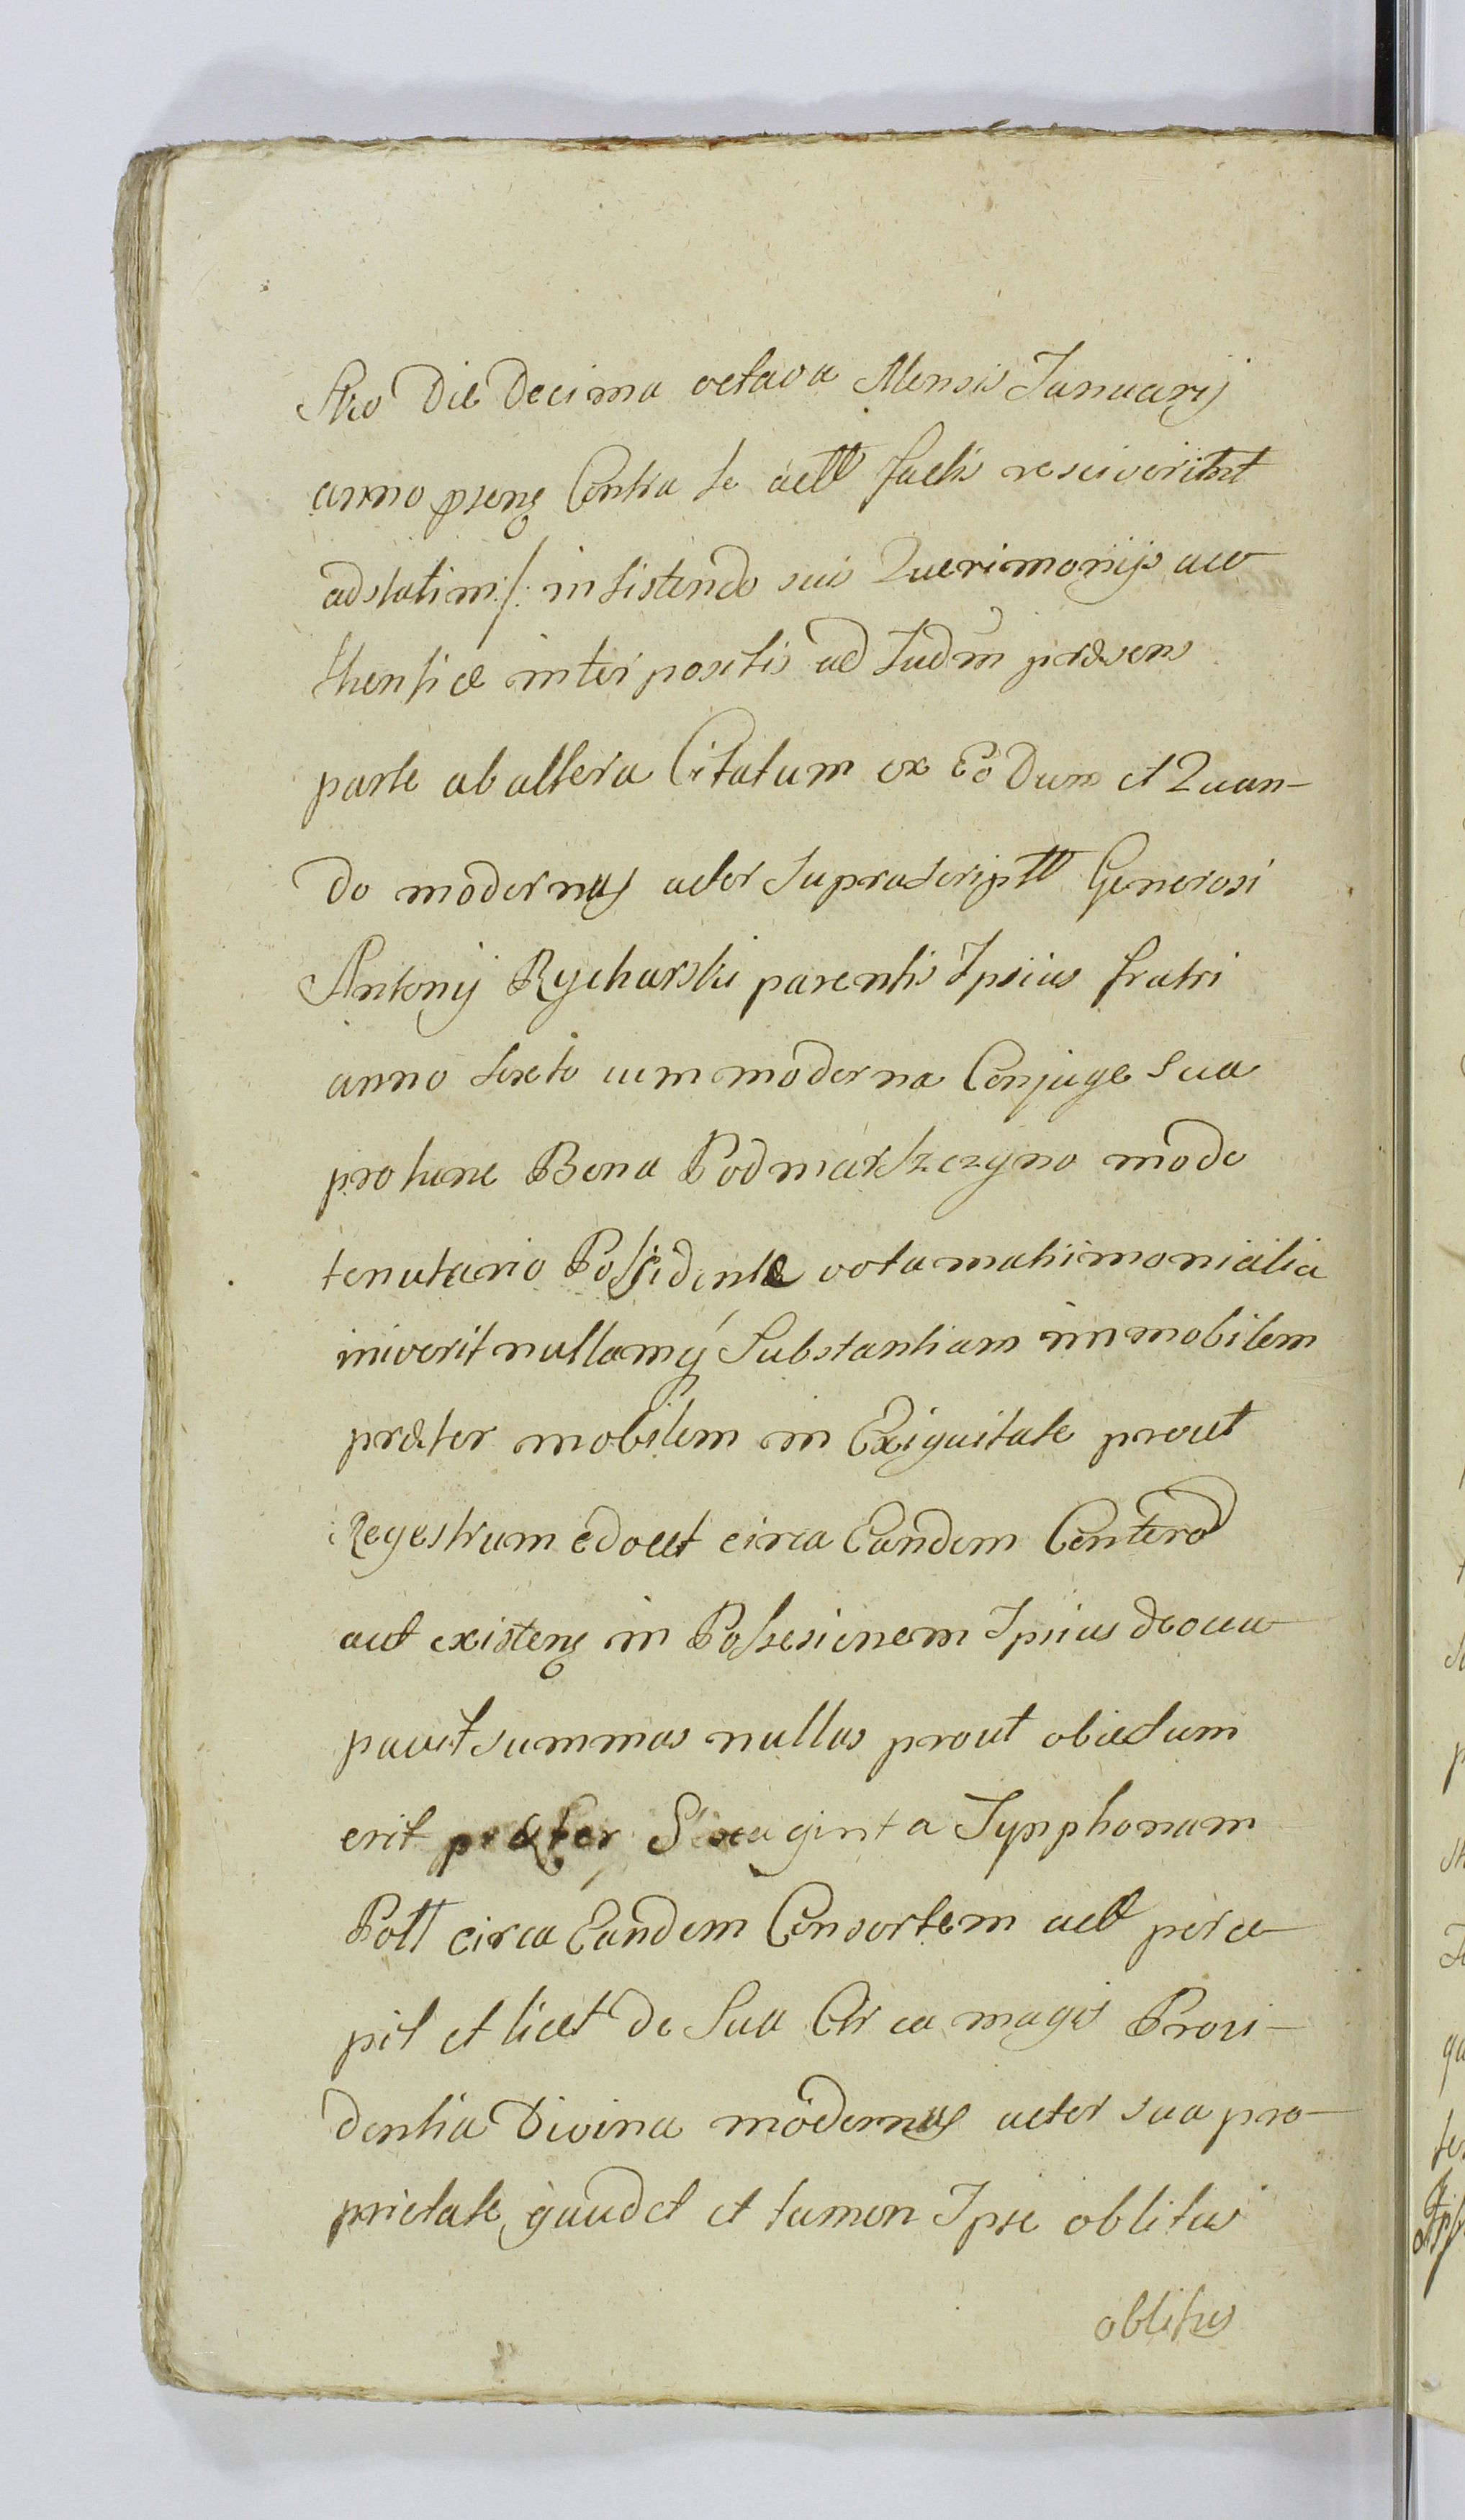 stro Die Decima octava Mensis Januarij
anno psenꝫ Contra se actt factis resciverint
adstatim :/: insistendo suis Querimonijs auc
thentice interpositis ad Judm̃ præsens
parte ab altera Citatum ex Eo Dum et Quan-
do modernus actor suprascriptt Generosi
Antonij Rycharski parentis Ipsius fratri
anno sexto cum moderna Conjuge sua
pro tunc Bona Podmarszczyno modo
tenutario Possidente vota matrimonialia
iniverit nullamq́ Substantiam immobilem
præter mobilem in Exiguitate prout
Regestrum edocet circa Eandem
aut existenꝫ in Possesionem Ipsius deocu
pavit summas nullas prout obiectum
erit præter Sexaginta Tynphonum
Poll circa Eandem Consortem actt perce
pit et licet de Sua Circa magis Provi-
dentia Divina modernus actor sua pro-
prietate gaudet et tamen Ipse oblitus
oblitus